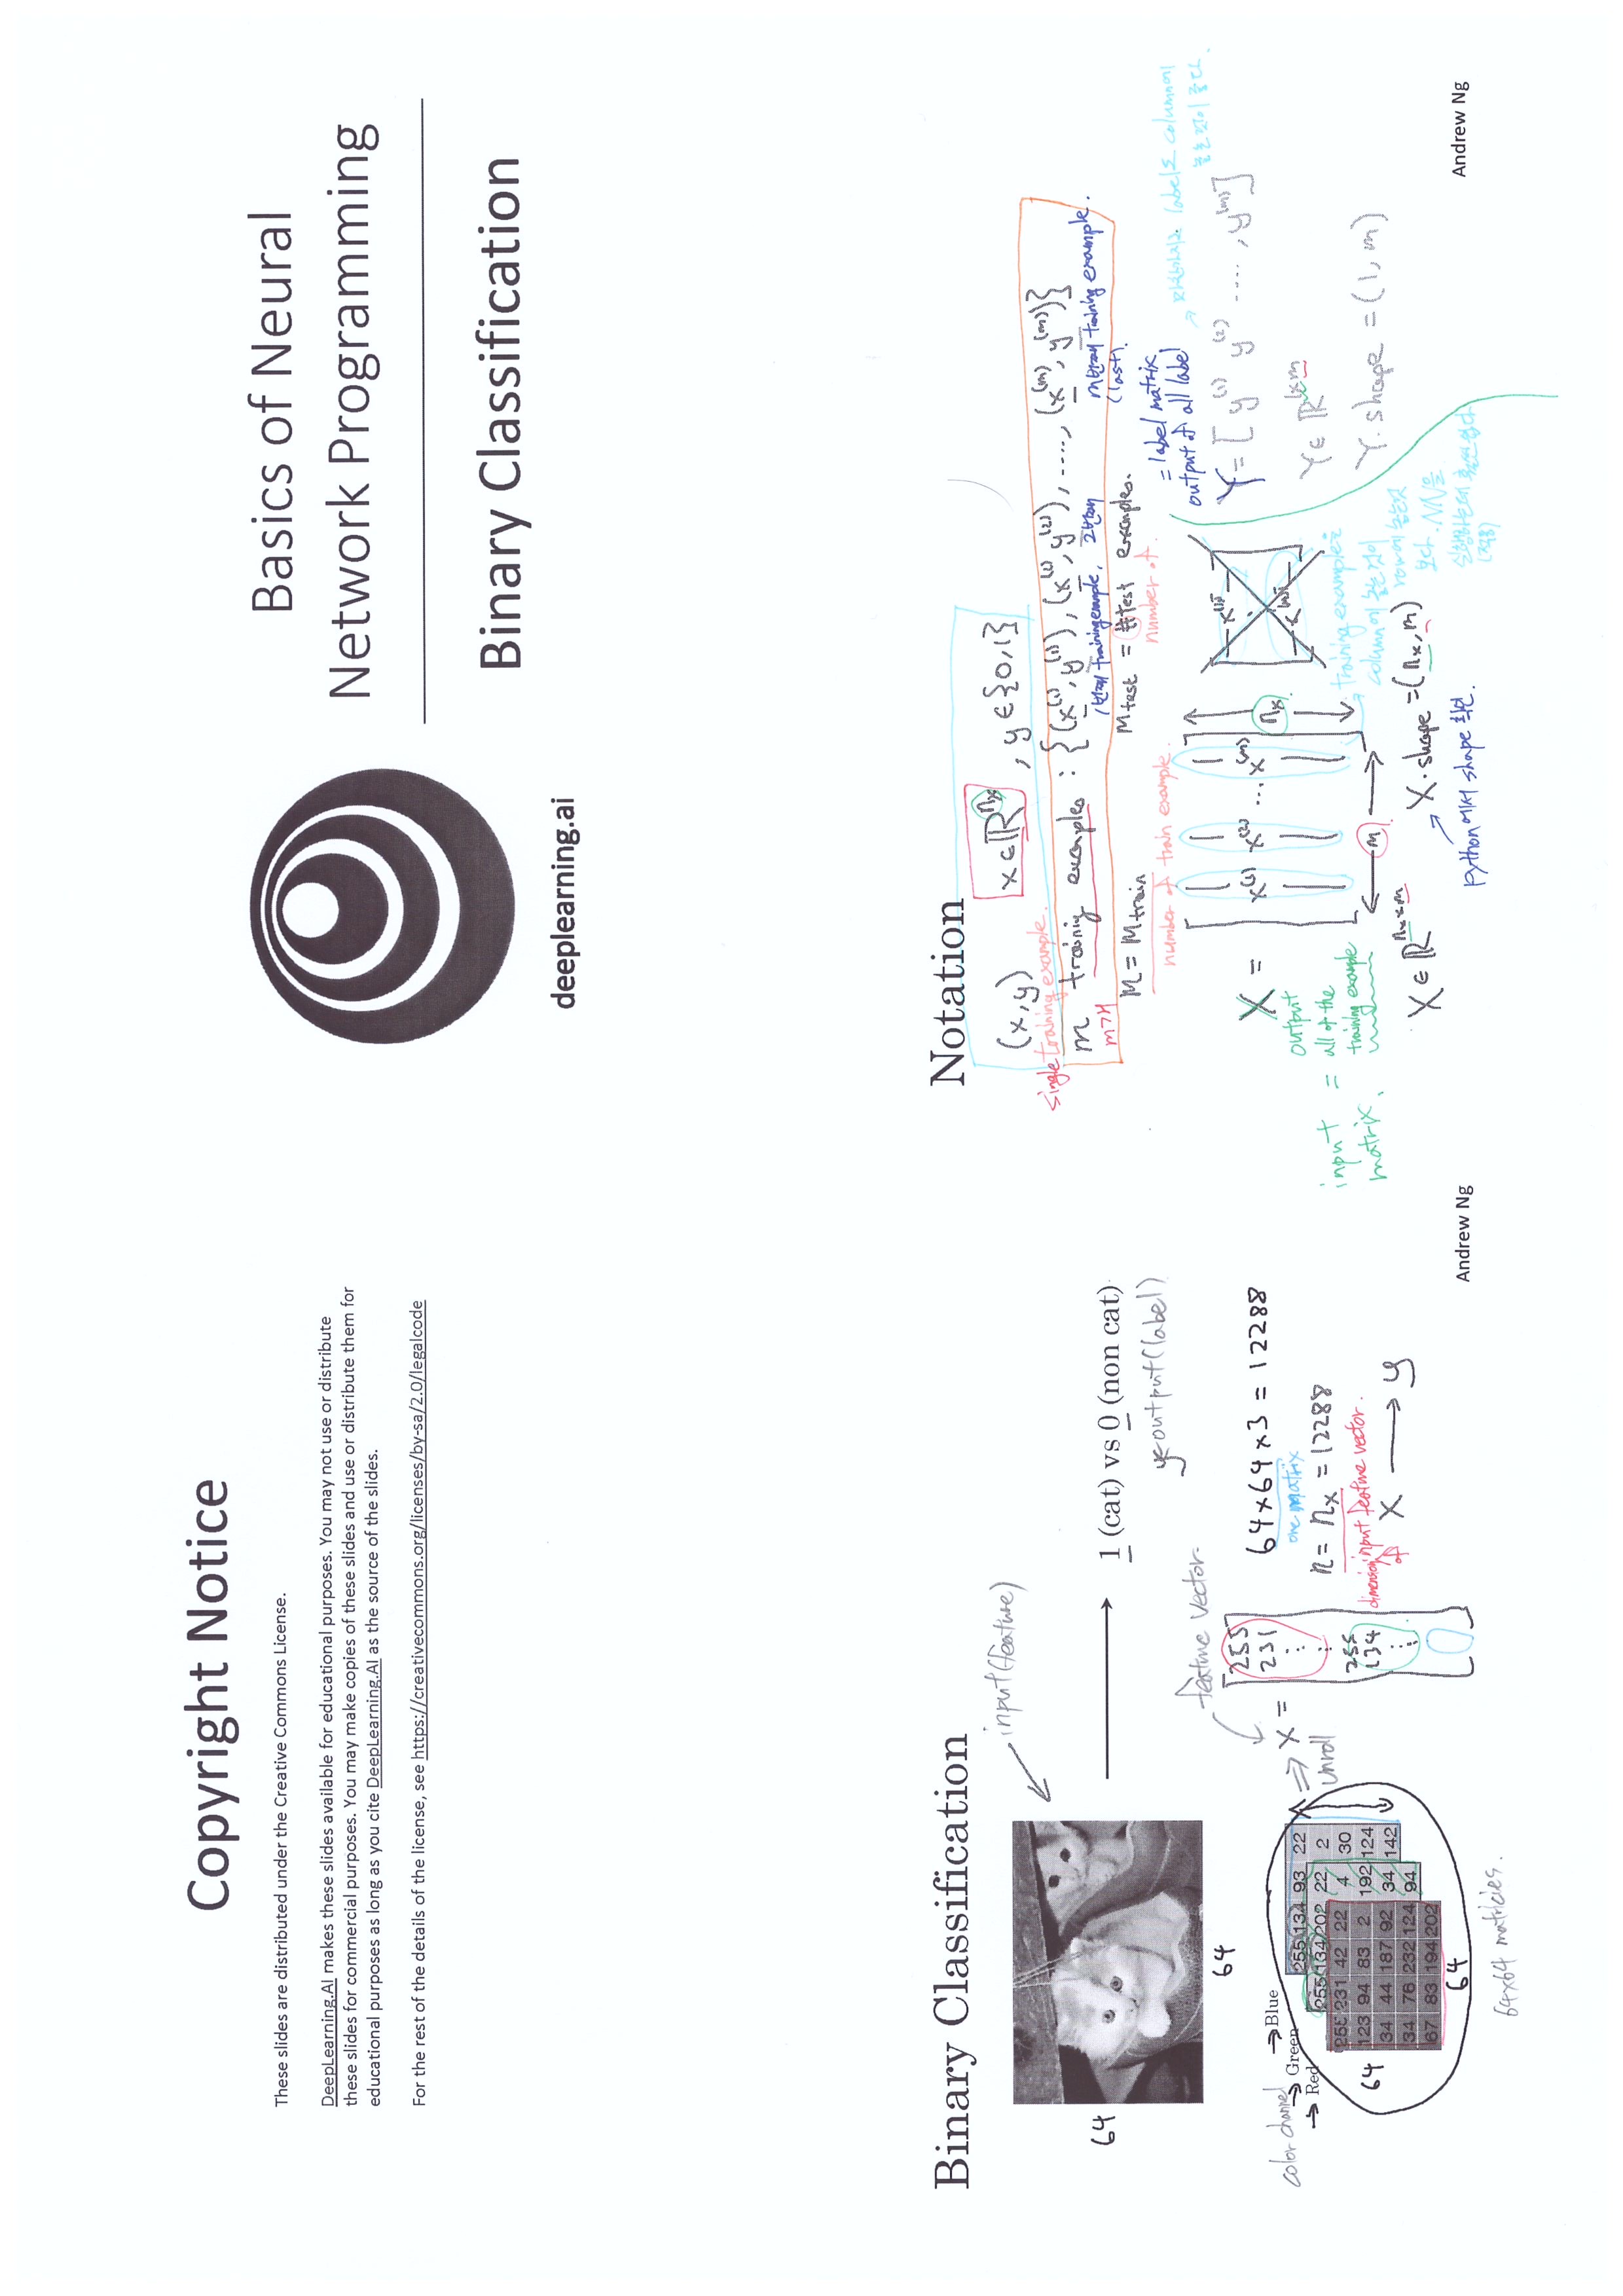 Copyright Notice
These slides are distributed under the Creative Commons License.
DeepLearning.AI makes these slides available for educational purposes. You may not use or distribute
these slides for commercial purposes. You may make copies of these slides and use or distribute them for
educational purposes as long as you cite DeepLearning.AI as the source of the slides.
For the rest of the details of the license, see https://creativecommons.org/licenses/by-sa/2.0/legalcode
deeplearning.ai
Basics of Neural
Network Programming
Binary Classification
Binary Classification
input(feature)
64
64
1 (cat) vs 0 (non cat)
y←output(label)
feature vector.
color channel
→Blue
→ Green
→ Red
255 134 93 22
255 134 202 22 2
255 231 42 22 4 30
123 94 83 2 192 124
34 44 187 92 34 142
34 76 232 124 94
67 83 194 202
64
64
64x64 matricies.
⇒ unroll
x =
255
231
⋮
255
134
⋮
64×64×3 = 12288
one matrix
n = nx = 12288
dimension of input feature vector.
X → y
Andrew Ng
Notation
(x,y) x∈ℝ^nx , y∈{0,1}
single training example.
m trainig examples : {(x^(1),y^(1)),(x^(2),y^(2)),....,(x^(m),y^(m))}
m개
1번째 training example, 2번째 m번째 training example.
(last).
M = M train M test = #test examples.
number of train example. number of.
X = [ x^(1) x^(2) ... x^(m) ] nx
m
input matrix. = output all of the training example
X ∈ ℝ^nx×m X.shape = (nx, m)
python에서 shape 확인.
training example을
column에 놓는것이
row에 놓는것
보다. NN을
실행하는데 훨씬 쉽다
(적용)
= label matrix
output of all label
→ 마찬가지로 label도 column에
놓는것이 좋다.
Y = [ y^(1) y^(2) ...., y^(m) ]
Y∈ ℝ^1×m
Y.shape = (1, m)
Andrew Ng